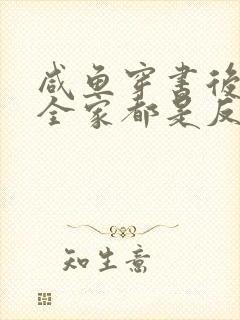 咸鱼穿书後
全家都是反
知生意